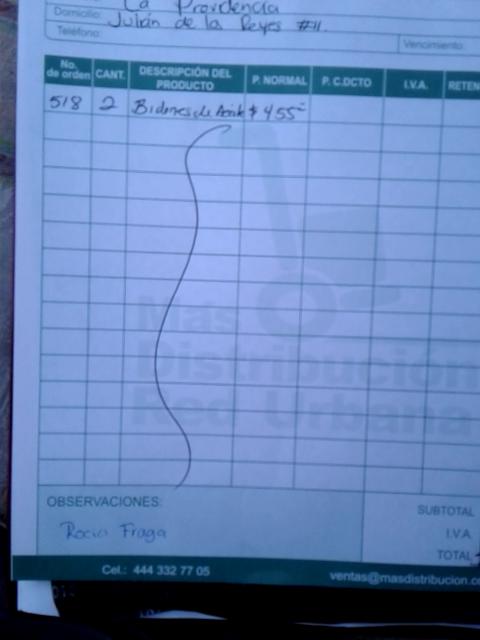 La Providencia
Domicilio: Julián de los Reyes #11.
Teléfono:
Vencimiento:
No. de orden CANT. DESCRIPCIÓN DEL PRODUCTO P. NORMAL P. C.DCTO I.V.A. RETEN
518 2 Bidones de Aceite $455
Más
Distribución
Red Urbana
OBSERVACIONES:
Rocio Fraga
SUBTOTAL
I.V.A.
TOTAL
Cel.: 444 332 77 05 ventas@masdistribucion.co